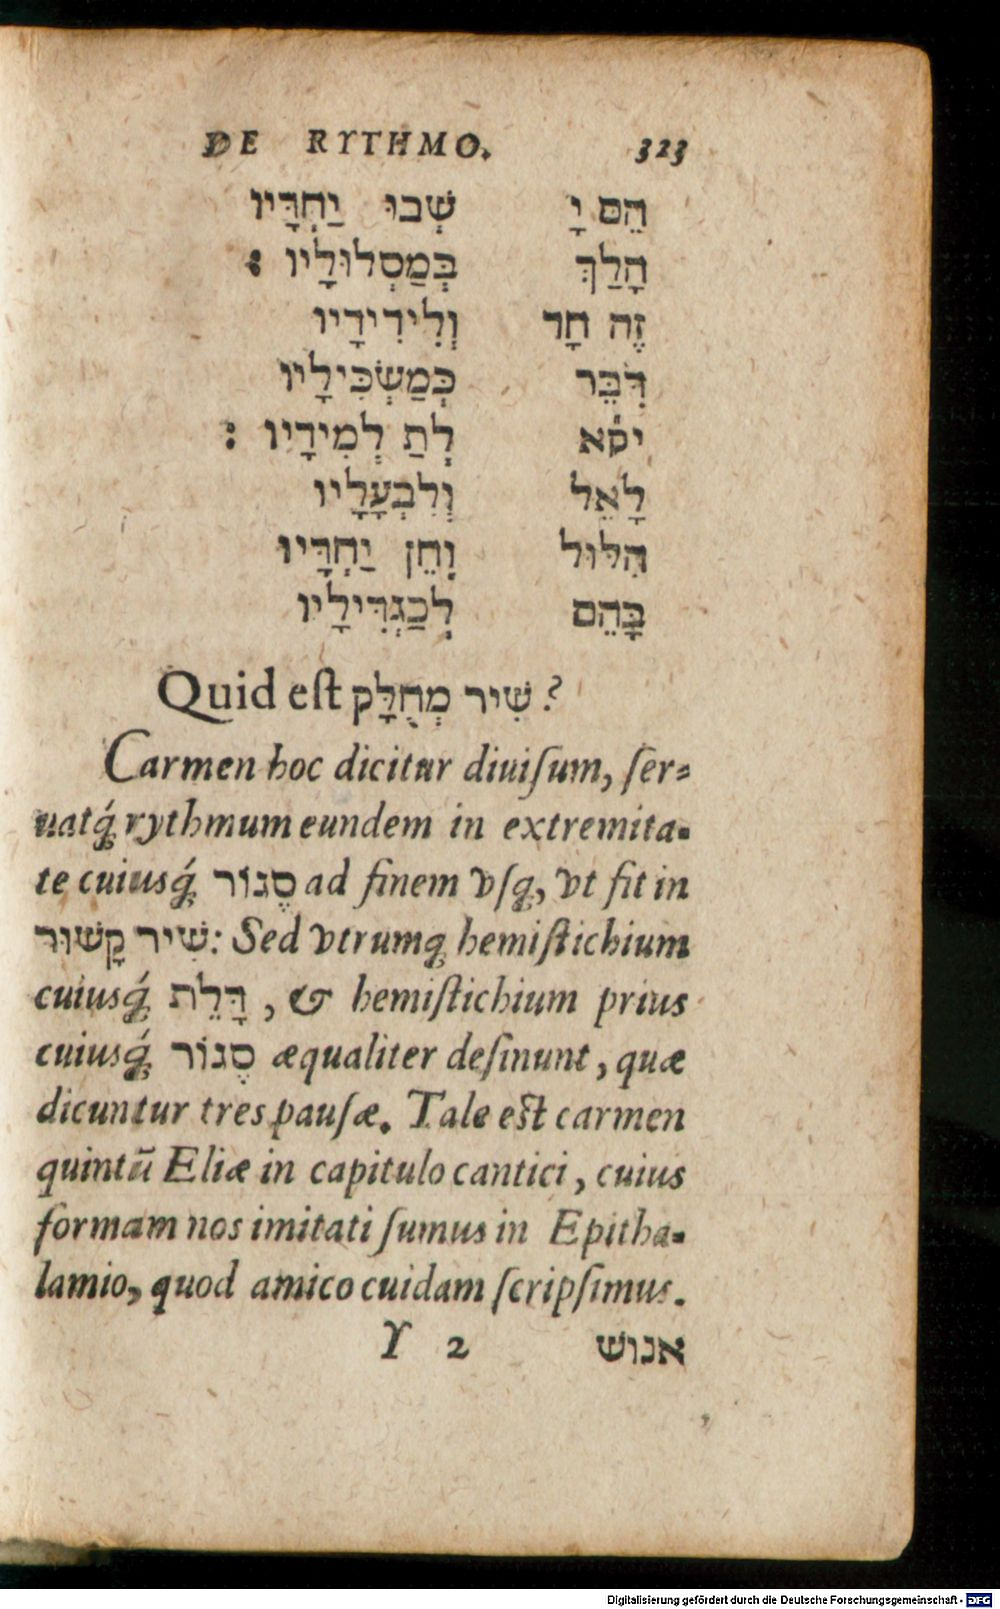 DE RYTHMO. 323
הֵם יָ שְׁבוּ יַחְדָּיו
הָלַךְ בְּמַסְלוּלָיו :
זֶה חָר וְלִידִידָיו
דִּבֵּר כְּמַשְׂכִּילָיו
יסא לְתַ לְמִידָיו :
לָאֵל וְלִבְעָלָיו
הִלּוּל וְחֵן יַחְדָּיו
בָּהֶם לְכַגְּדִילָיו
Quid est שִׁיר מְחֻלָּק ?
Carmen hoc dicitur diuiſum, ſer=
uatq́; rythmum eundem in extremita-
te cuiusq́; סֶגּוֹר ad finem vſq;, vt fit in
שִׁיר קָשׁוּר: Sed vtrumq; hemiſtichium
cuiusq́; דָּלֵת , & hemiſtichium prius
cuiusq́; סֶגּוֹר æqualiter deſinunt, quæ
dicuntur tres pauſæ. Tale est carmen
quintū Eliæ in capitulo cantici, cuius
formam nos imitati ſumus in Epitha-
lamio, quod amico cuidam ſcripſimus.
Y 2 אנוש
Digitalisierung gefördert durch die Deutsche Forschungsgemeinschaft - DFG